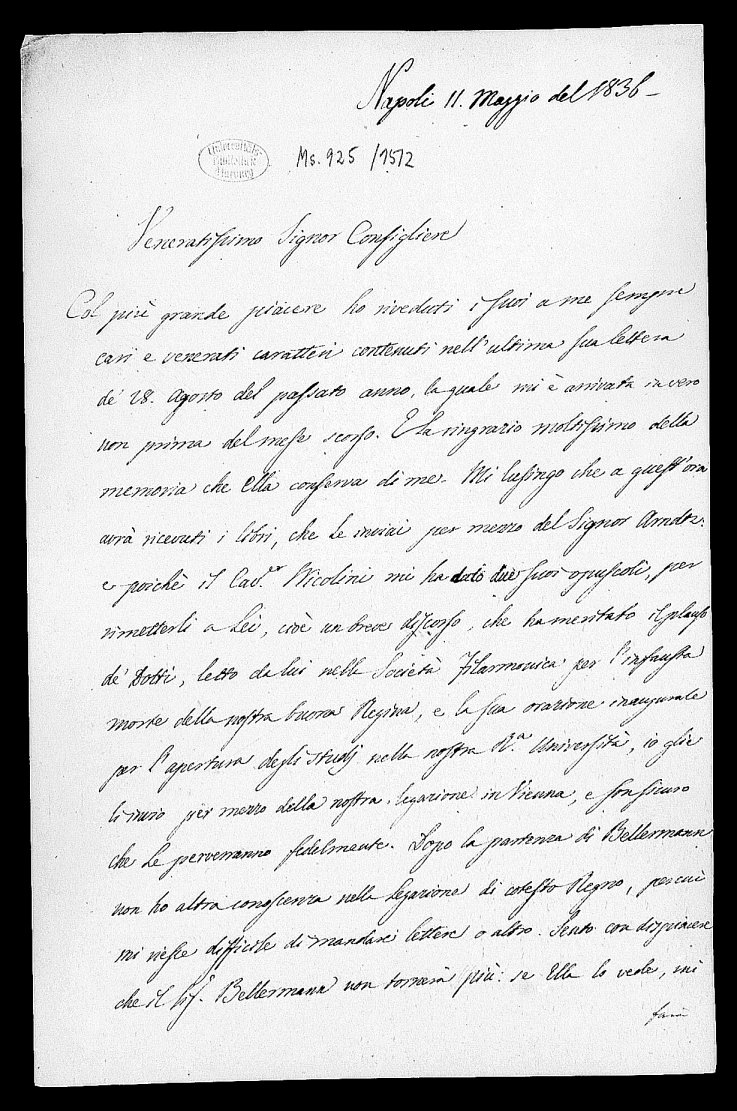 Napoli 11. Maggio del 1836 –
Universitäts
Bibliothek
Marburg
Ms. 925 / 1572
Veneratissimo Signor Consigliere
Col più grande piacere ho riveduti i suoi a me sempre
cari e venerati caratteri contenuti nell'ultima sua lettera
de' 28. Agosto del passato anno, la quale mi è arrivata invero
non prima del mese scorso. E la ringrazio moltissimo della
memoria che Ella conserva di me. Mi lusingo che a quest'ora
avrà ricevuti i libri, che Le inviai per mezzo del Signor Arndtz.
e poichè il Cav.r Nicolini mi ha dato due suoi opuscoli, per
rimetterli a Lei, cioè un breve discorso, che ha meritato il plauso
de' Dotti, letto da lui nella Società Filarmonica per l'infausta
morte della nostra buona Regina, e la sua orazione inaugurale
per l'apertura degli Studj nella nostra R.a Università, io glie
li invio per mezzo della nostra Legazione in Vienna, e son sicuro
che Le perverranno fedelmente. Dopo la partenza di Bellermann
non ho altra conoscenza nella Legazione di cotesto Regno, percui
mi riesce difficile di mandare lettere o altro. Sento con dispiacere
che il Sig. Bellermann non tornerà più: se Ella lo vede, mi